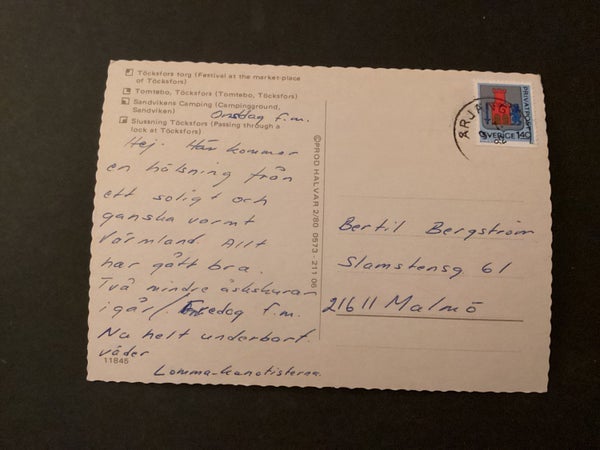 Töcksfors torg (Festival at the market-place
of Töcksfors)
Tomtebo, Töcksfors (Tomtebo, Töcksfors)
Sandvikens Camping (Campingground,
Sandviken)
Slussning Töcksfors (Passing through a
lock at Töcksfors)
Onsdag f.m.
Hej. Här kommer
en hälsning från
ett soligt och
ganska varmt
Värmland. Allt
har gått bra.
Två mindre åskskurar
igår/. Fredag f.m.
Nu helt underbart
väder
Lomma-kanotisterna.
11845
©PROD HALVAR 2/80 0573-211 06
ÄRJÄNG
PRIVATPOST
SVERIGE 140
Bertil Bergström
Slamstensg 61
21611 Malmö